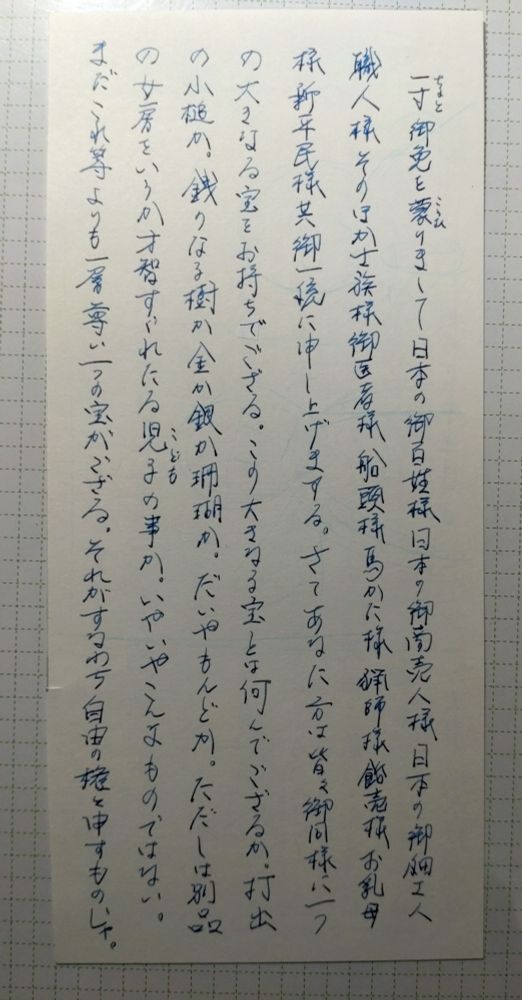 一寸御免を蒙りまして日本の御百姓様日本の御商売人様日本の御細工人
職人様そのほか士族様御医者様船頭様馬かた様猟師様飴売様お乳母
様新平民様共御一統に申し上げまする。さてあなた方は皆々御同様に一つ
の大きなる宝をお持ちでござる。この大きなる宝とは何んでござるか。打出
の小槌か。銭のなる樹か金か銀か珊瑚か。だいやもんどか。ただしは別品
の女房をいうか才智すぐれたる児子の事か。いやいやこんなものではない。
まだこれ等よりも一層尊い一つの宝がござる。それがすなわち自由の権と申すものじゃ。
ちょと
こうむ
こども